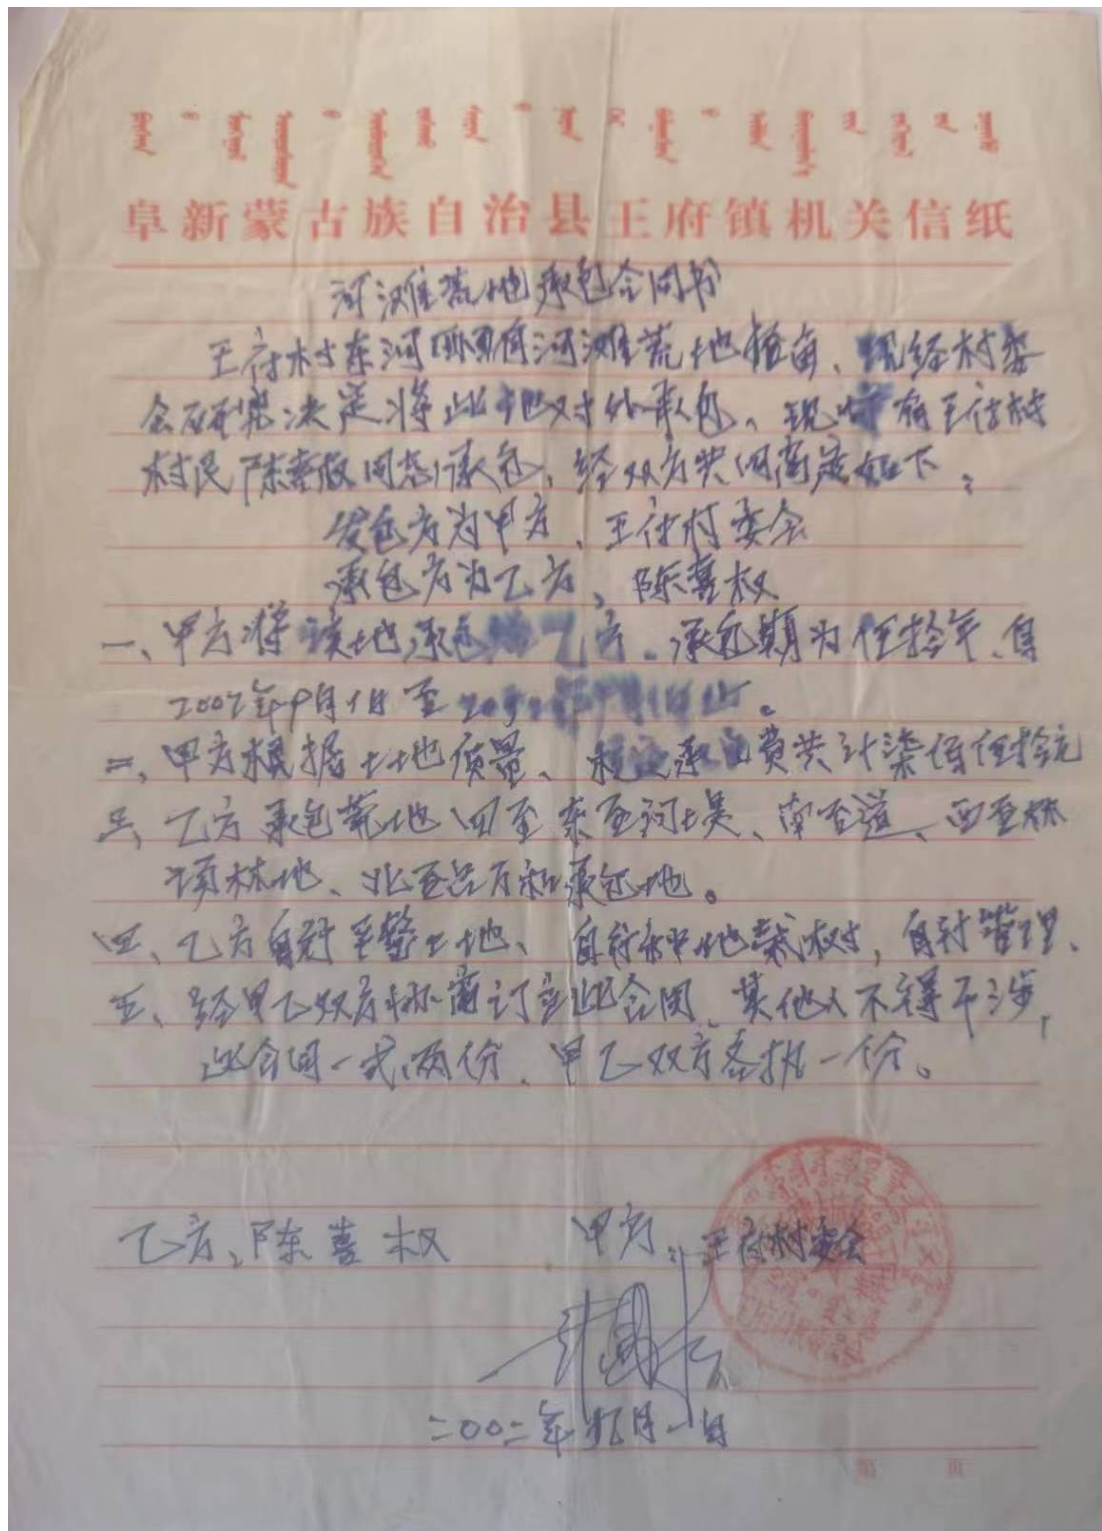 阜新蒙古族自治县王府镇机关信纸
河滩荒地承包合同书
王府村东河 有河滩荒地 亩、现经村委
会研究决定将此地对外承包、现 有王府村
村民陈喜权同意承包、经双方共同商定如下：
发包方为甲方、王府村委会
承包方为乙方、陈喜权
一、甲方将该地承包给乙方。承包期为伍拾年、自
2002年9月1日至
二、甲方根据土地质量、 承包费共计柒佰伍拾元
三、乙方承包荒地四至东至河 、南至道、西至林
场林地、北至 承包地。
四、乙方自行平整土地、自行 地栽树，自行管理、
五、经甲乙双方协商订立此合同、其他人不得干涉，
此合同一式两份、甲乙双方各执一份。
乙方、陈喜权 甲方：王府村委会
二00二年九月一日
第 页